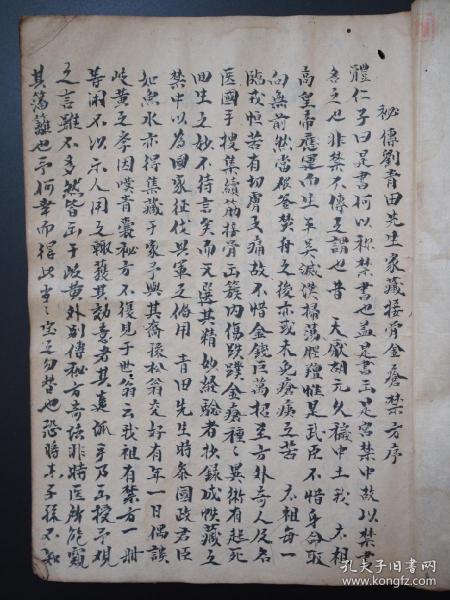 祕傳劉青田先生家藏接骨金瘡禁方序
體仁子曰是書何以稱禁書也蓋是書玉是宮禁中故以禁書
名之也非禁不傳之謂也昔 天厭胡元久穢中土我 太祖
高皇帝應運而生平吳滅漢掃蕩腥羶惟是武臣不惜身命敢
向無前然當殺營焚舟之後亦或未免瘡痍之苦 太祖每一
臨戎恒苦有切膚之痛故不惜金錢巨萬招至方外奇人及名
医國手搜集續筋接骨玉簇內傷跌蹼金瘡種〻異術有起死
回生之妙不待言矣而又選其精妙經驗者抄錄成帙藏之
禁中以為國家征伐興軍之備用 青田先生時參國政君臣
如魚水亦得集藏于家予與其裔孫松翁交好有年一日偶談
岐黃之季因嘆青囊秘方不復見于世翁云我祖有禁方一冊
等閑不以示人用之輒獲其効意者其真派乎乃出授予觀
之言雖不多然皆玉于岐黃外別傳秘方奇法非時医所能窺
其藩籬也予何幸而得此
勿替也恐時才子孫不知
孔夫子旧书网